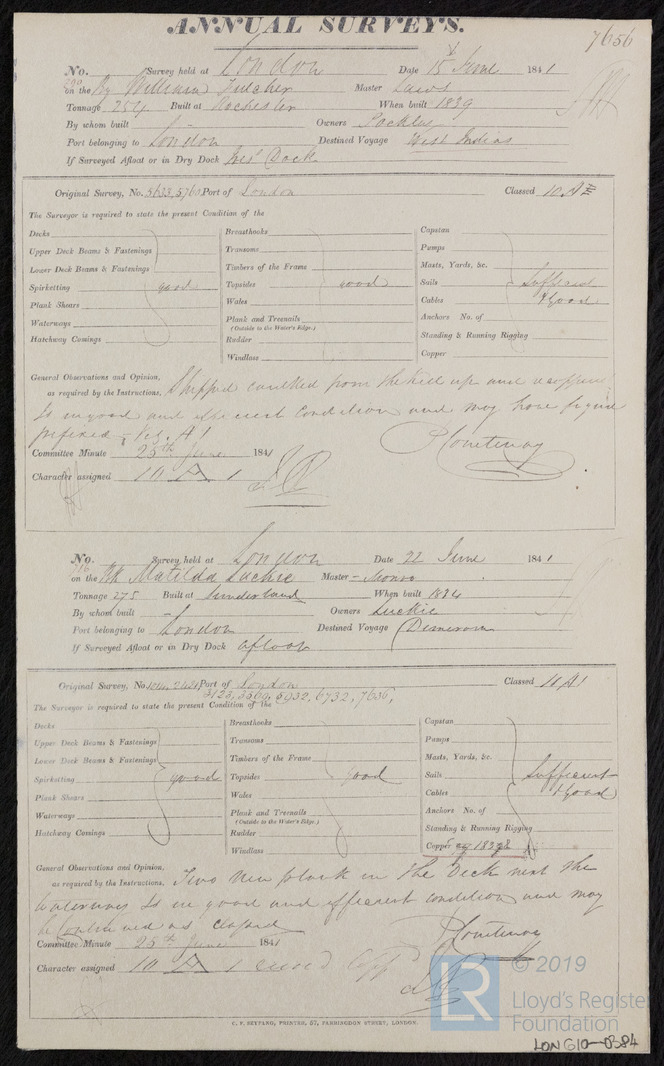 ANNUAL SURVEYS.
7656
No. Survey held at London Date 15 June 1841
on the Bg William Fulcher Master Laws
Tonnage 254 Built at Rochester When built 1839
By whom built - Owners
Port belonging to London Destined Voyage West Indies
If Surveyed Afloat or in Dry Dock Dock
Original Survey, No. 5633, 5760 Port of London Classed 10 A
The Surveyor is required to state the present Condition of the
Decks
Upper Deck Beams & Fastenings
Lower Deck Beams & Fastenings
Spirketting good
Plank Shears
Waterways
Hatchway Comings
Breasthooks
Transoms
Timbers of the Frame
Topsides good
Wales
Plank and Treenails
(Outside to the Water's Edge.)
Rudder
Windlass
Capstan
Pumps
Masts, Yards, &c.
Sails Sufficient
Cables & Good
Anchors No. of
Standing & Running Rigging
Copper
General Observations and Opinion, Stripped caulked from the keel up and
as required by the Instructions. Is in good and efficient condition and may have figure
prefixed - Viz. A 1
Courtenay
Committee Minute 25th June 1841
Character assigned 10 A 1
No. 716 Survey held at London Date 22 June 1841
on the Bk Matilda Luckie Master - Monro
Tonnage 275 Built at Sunderland When built 1834
By whom built - Owners Luckie
Port belonging to London Destined Voyage Demerara
If Surveyed Afloat or in Dry Dock afloat
Original Survey, No. Port of London Classed 10 A1
3123, 3569, 5932, 6732, 7636,
The Surveyor is required to state the present Condition of the
Decks
Upper Deck Beams & Fastenings
Lower Deck Beams & Fastenings
Spirketting good
Plank Shears
Waterways
Hatchway Comings
Breasthooks
Transoms
Timbers of the Frame
Topsides good
Wales
Plank and Treenails
(Outside to the Water's Edge.)
Rudder
Windlass
Capstan
Pumps
Masts, Yards, &c.
Sails Sufficient
Cables & Good
Anchors No. of
Standing & Running Rigging
Copper
General Observations and Opinion, Two New plank in the Deck next the
as required by the Instructions. Waterways Is in good and efficient condition and may
be Continued as classed
Courtenay
Committee Minute 25th June 1841
Character assigned 10 A 1
C. F. SEYFANG, PRINTER, 57, FARRINGDON STREET, LONDON.
LR © 2019
Lloyd's Register
Foundation
LON610-0384